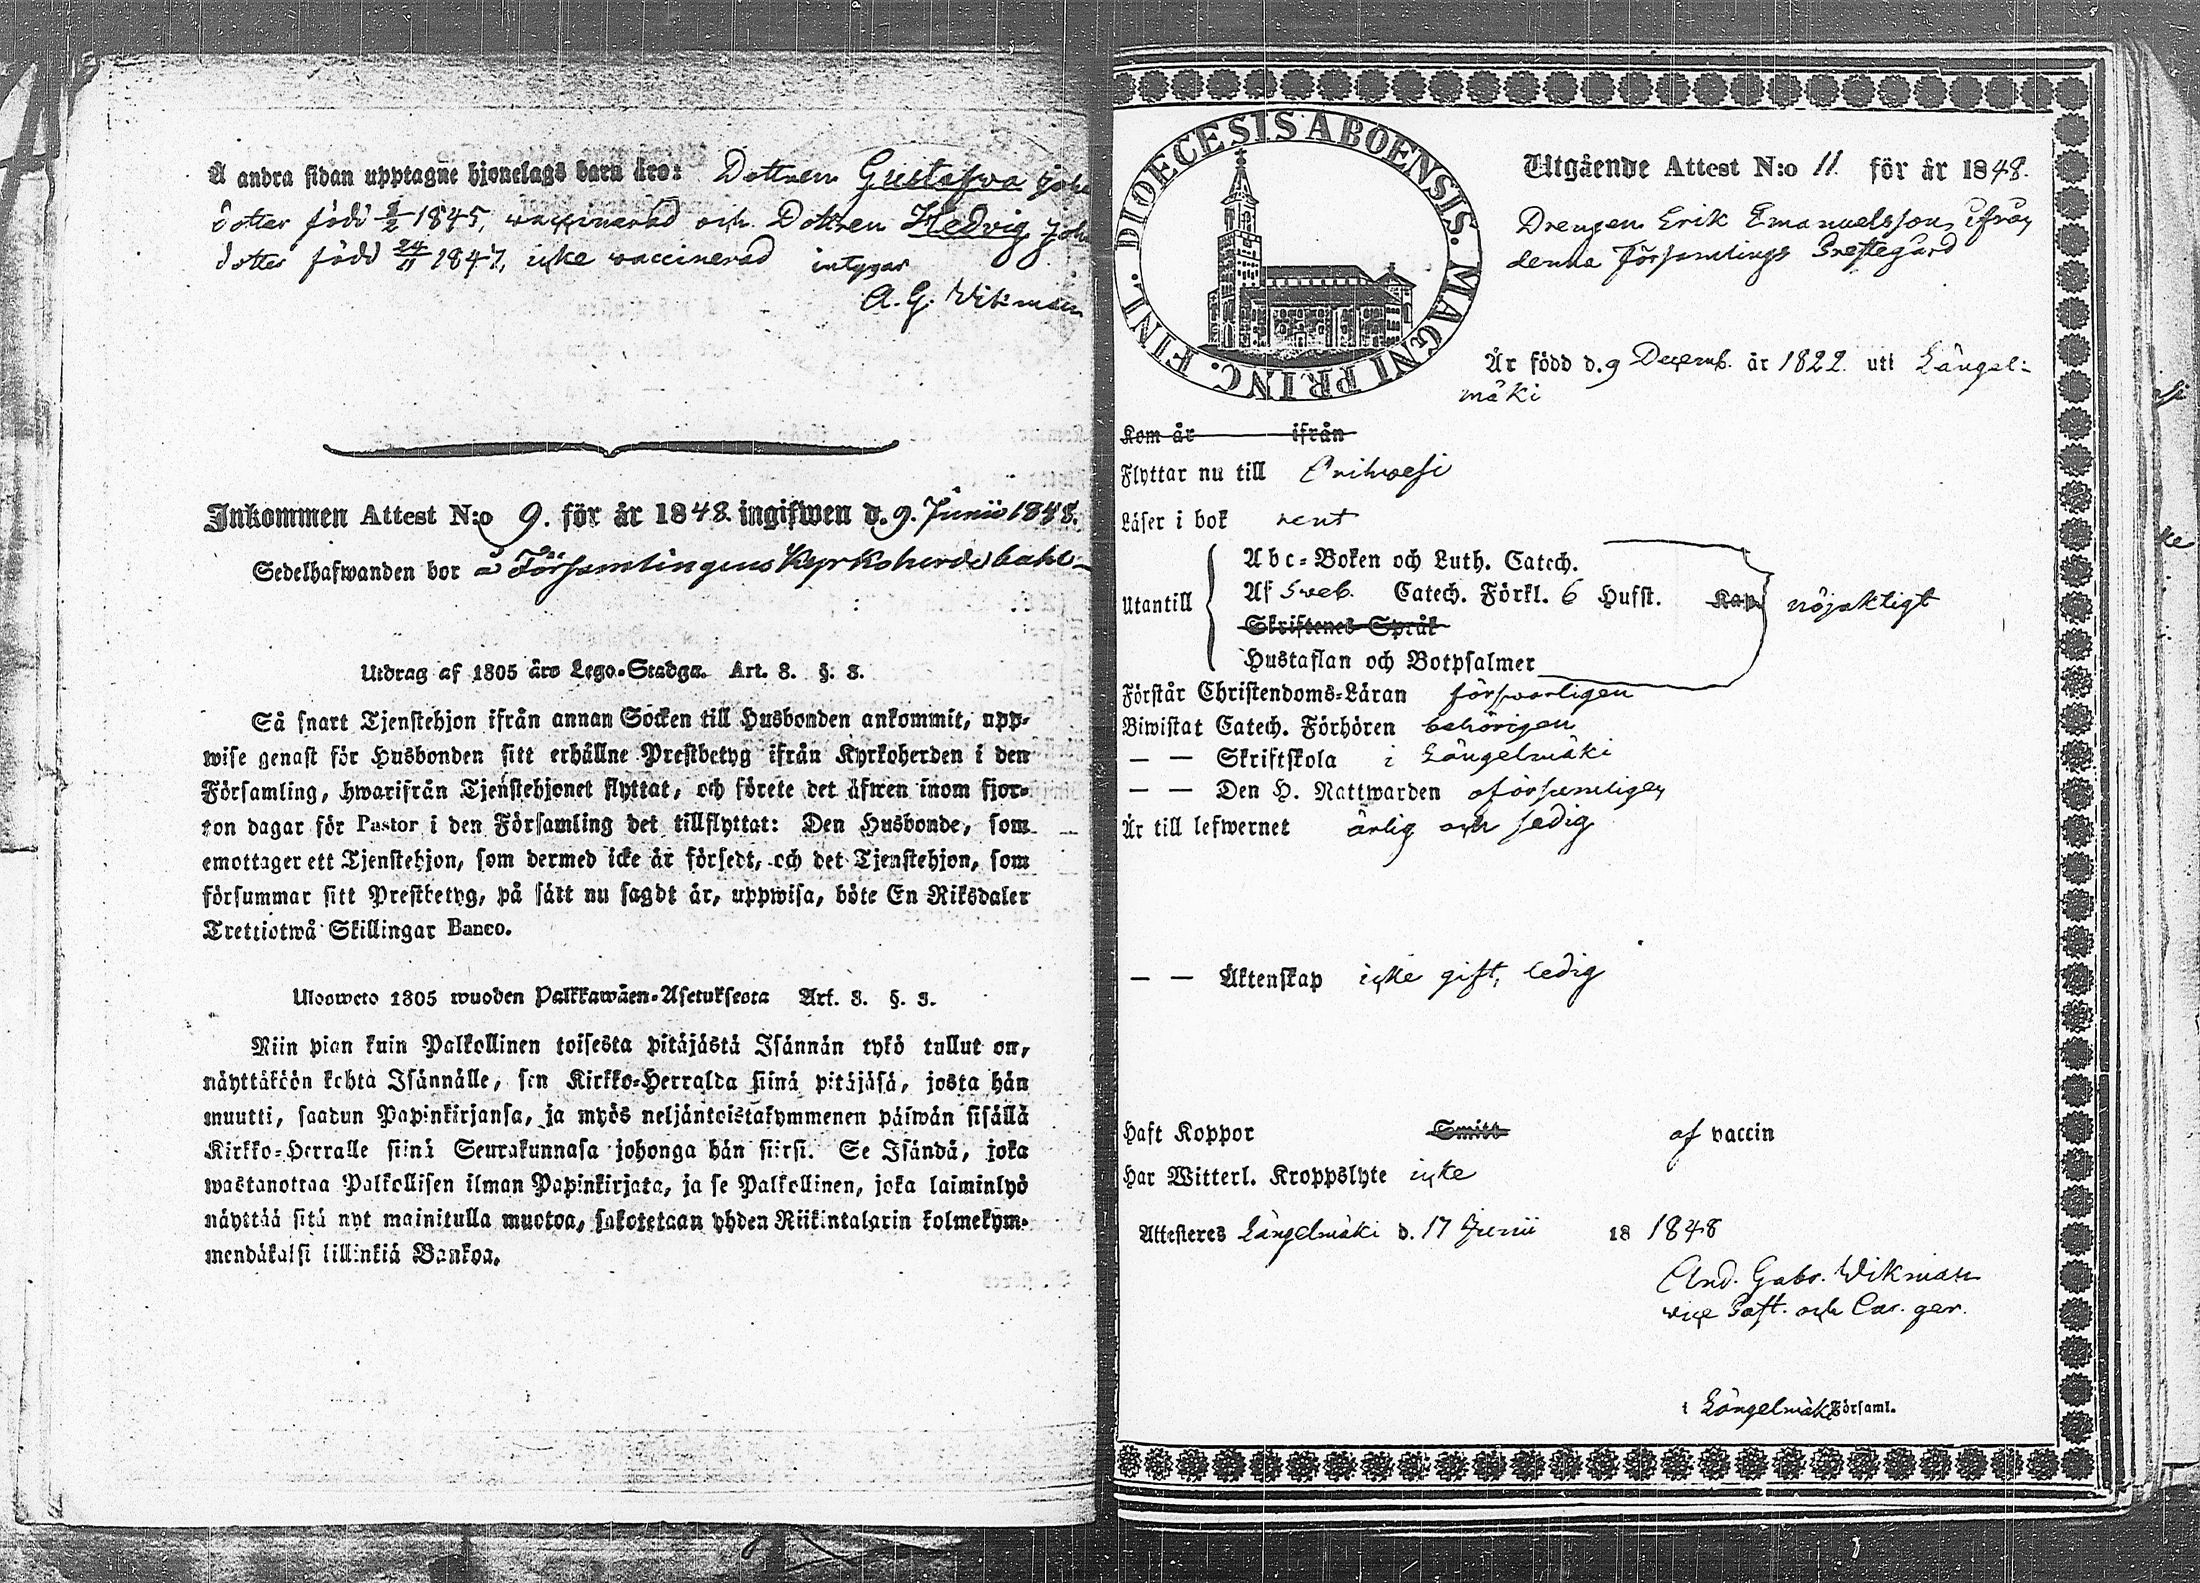 Å andra sidan upptagne hjonelags barn äro: Dottren Gustafva Joh
dotter född 2/2 1845, vaccinerad och Dottren Hedvig Joh
dotter född 24/11 1847, icke vaccinerad intygar
A. G. Wikman
Inkommen Attest N:o 9. för år 1848. ingifwen d. 9. Junii 1848.
Sedelhafwanden bor å Församlingens Kyrkoherde bohl
Utdrag af 1805 års Lego-Stadga. Art. 8. §. 3.
Så snart Tjenstehjon ifrån annan Socken till Husbonden ankommit, upp-
wise genast för Husbonden sitt erhållne Prestbetyg ifrån Kyrkoherden i den
Församling, hwarifrån Tjenstehjonet flyttat, och förete det äfwen inom fjor-
ton dagar för Pastor i den Församling det tillflyttat: Den Husbonde, som
emottager ett Tjenstehjon, som dermed icke är försedt, och det Tjenstehjon, som
försummar sitt Prestbetyg, på sätt nu sagdt är, uppwisa, böte En Riksdaler
Trettiotwå Skillingar Banco.
Ulosweto 1805 wuoden Palkkawäen-Asetuksesta Art. 8. §. 3.
Niin pian kuin Palkollinen toisesta pitäjästä Isännän tykö tullut on,
näyttäköön kohta Isännälle, sen Kirkko-Herralda siinä pitäjäsä, josta hän
muutti, saadun Papinkirjansa, ja myös neljäntoistakymmenen päiwän sisällä
Kirkko-Herralle siinä Seurakunnasa johonga hän siirsi. Se Isändä, joka
wastanottaa Palkollisen ilman Papinkirjata, ja se Palkollinen, joka laiminlyö
näyttää sitä nyt mainitulla muotoa, sakotetaan yhden Riikintalarin kolmekym-
mendäkaksi killinkiä Bankoa.
DIOECESIS ABOENSIS. MAGNI PRINC. FINL.
Utgående Attest N:o 11. för år 1848.
Drengen Erik Emanuelsson, ifrån
denna Församlings Prestegård
Är född d. 9 Decemb. år 1822. uti Längel-
mäki
Kom år ifrån
Flyttar nu till Orihvesi
Läser i bok rent
Utantill
Abc-Boken och Luth. Catech.
Af Sveb. Catech. Förkl. 6 Hufst. Kap. nöjaktigt
Skriftenes Språk
Hustaflan och Botpsalmer
Förstår Christendoms-Läran försvarligen
Biwistat Catech. Förhören behörigen
— — Skriftskola i Längelmäki
— — Den H. Nattwarden oförsumligen
Är till lefwernet ärlig och sedig
— — Äktenskap icke gift, ledig
Haft Koppor Smitt af vaccin
Har Witterl. Kroppslyte icke
Attesteres Längelmäki d. 17 Junii 18 1848
And. Gabr. Wikman
vice Past. och Cap. ger.
i Längelmäki Församl.